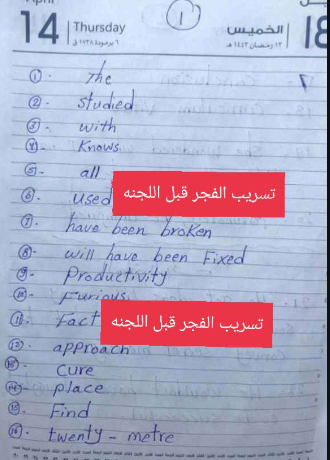 April
14
Thursday
٦ برمودة ١٧٣٨ ق
1
الخميس
١٣ رمضان ١٤٤٣ هـ
18
1- The
2- studied
3- with
4- Knows
5- all
6- used
7- have been broken
8- will have been Fixed
9- Productivity
10- Furious
11- Fact
12- approach
13- cure
14- place
15- Find
16- twenty - metre
تسريب الفجر قبل اللجنه
تسريب الفجر قبل اللجنه